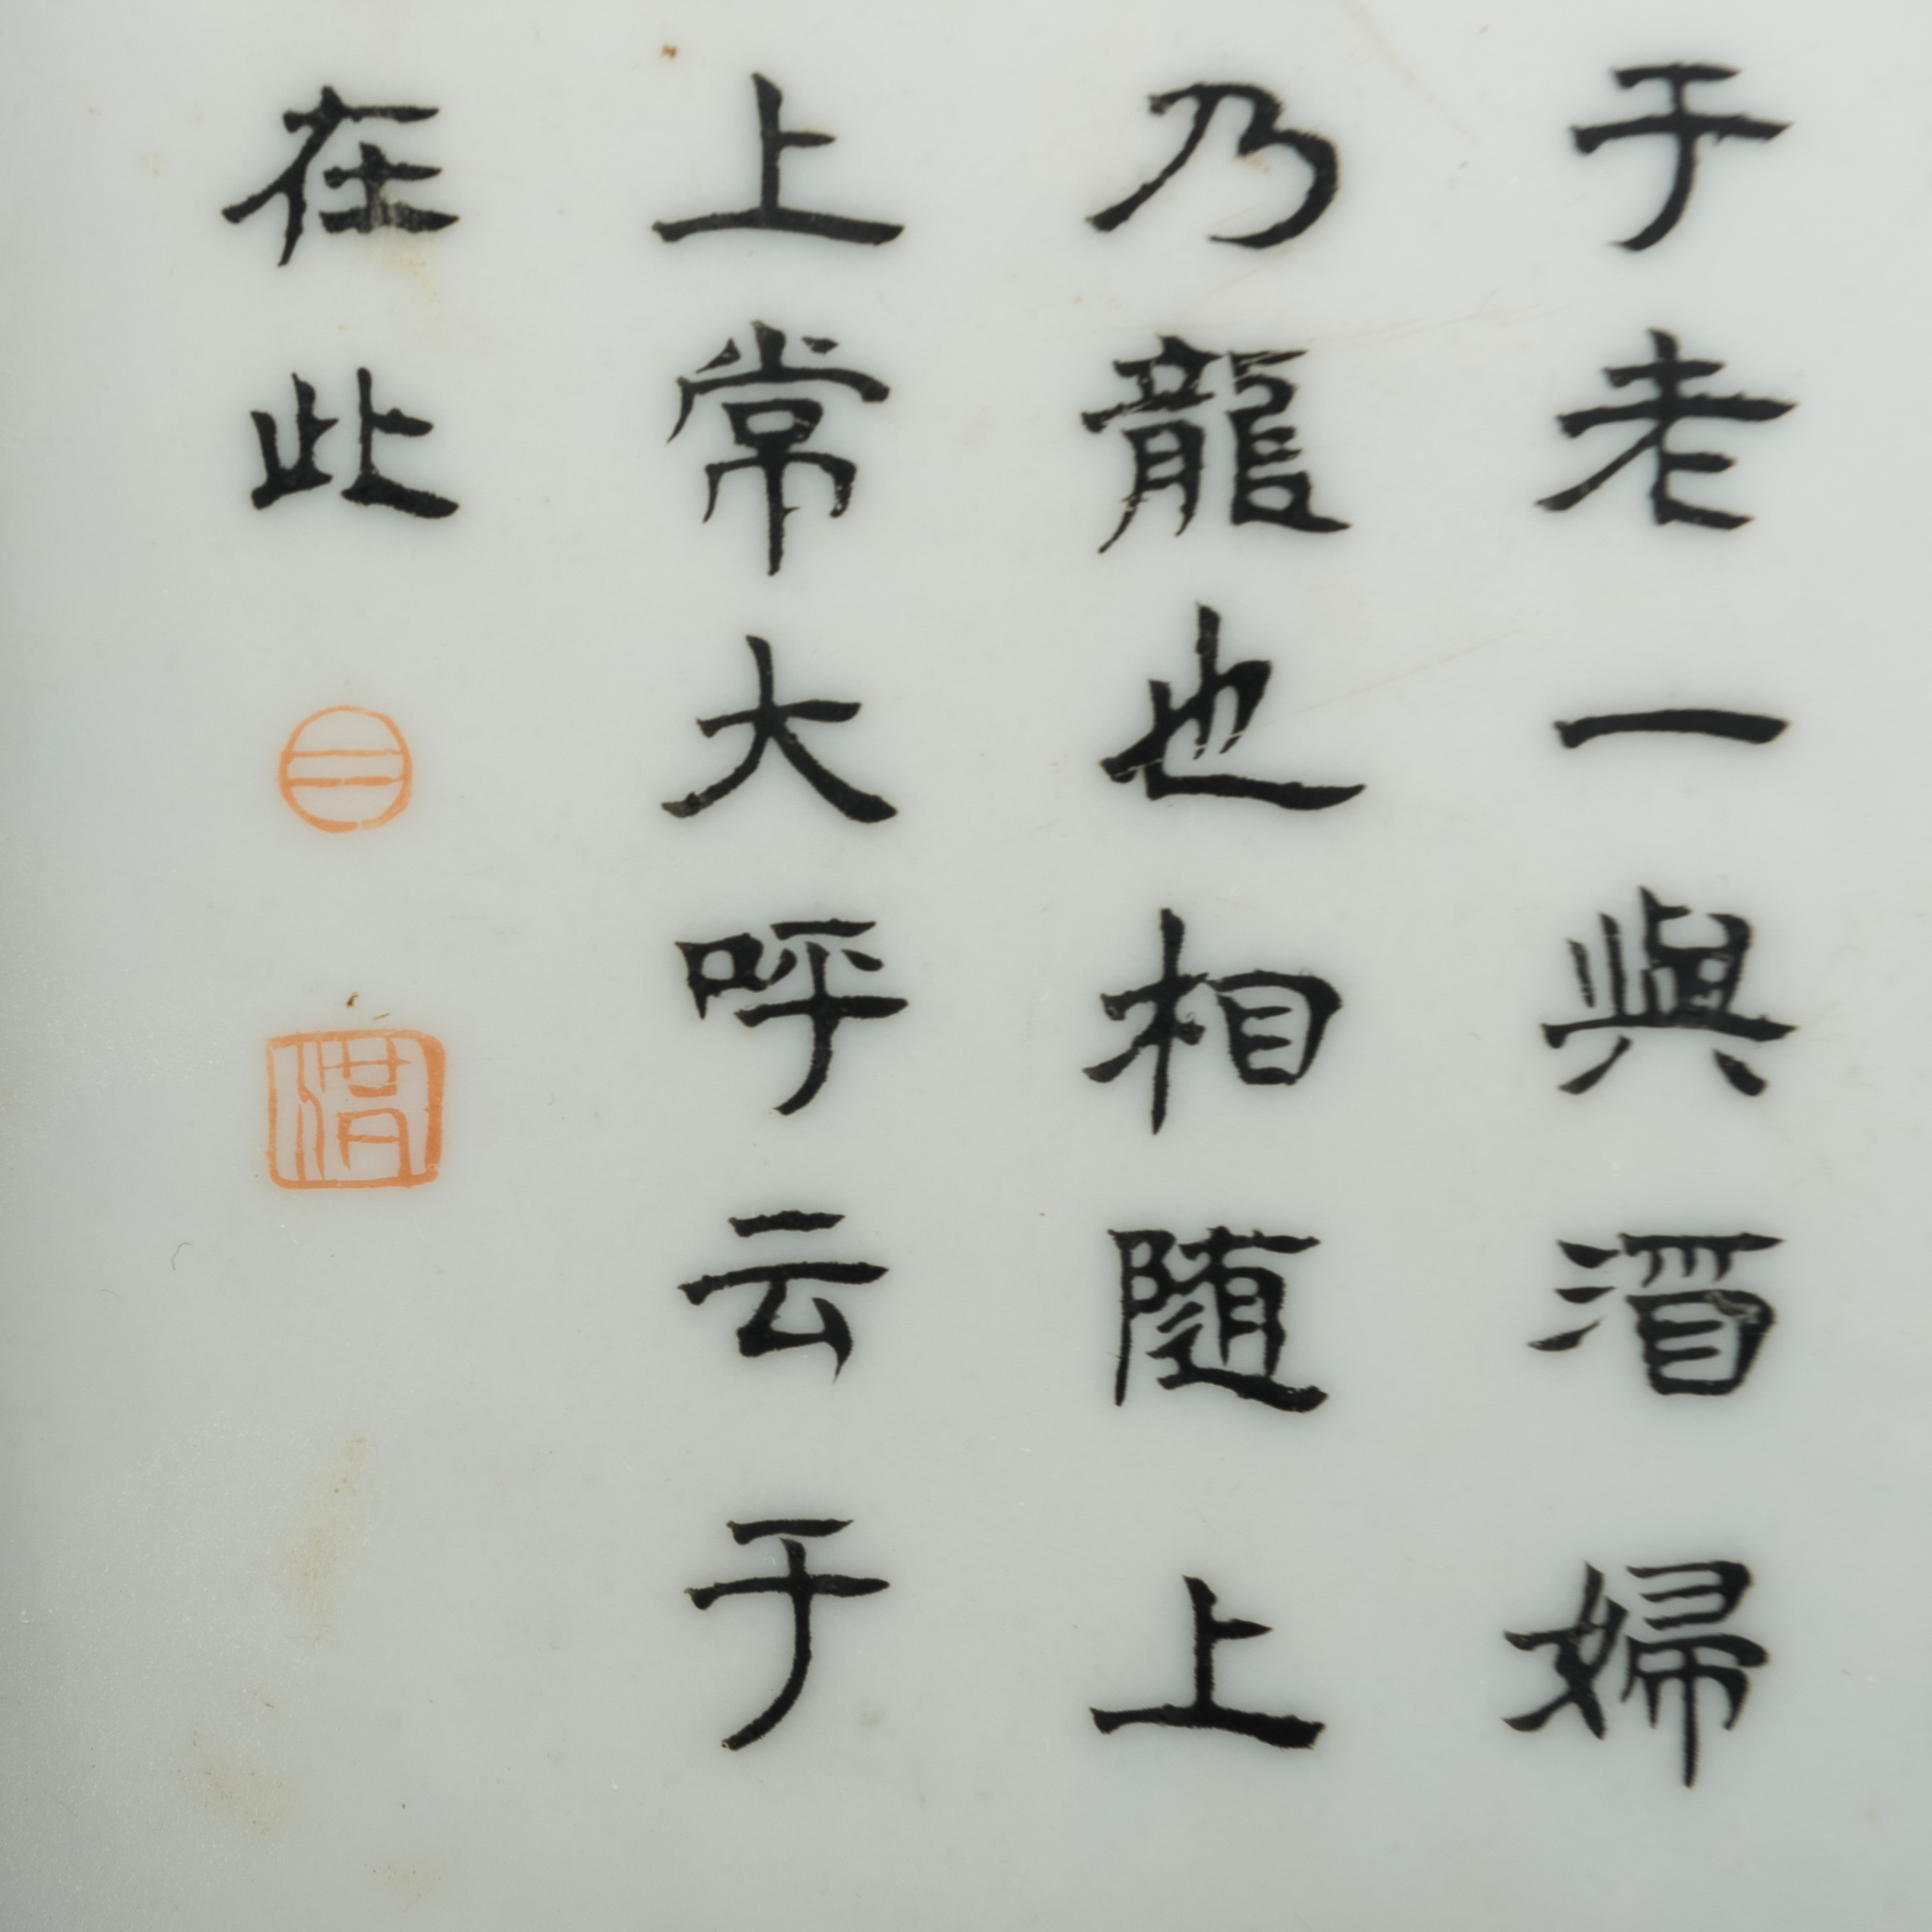 于老一與酒婦
乃龍也相随上
上常大呼云于
在此